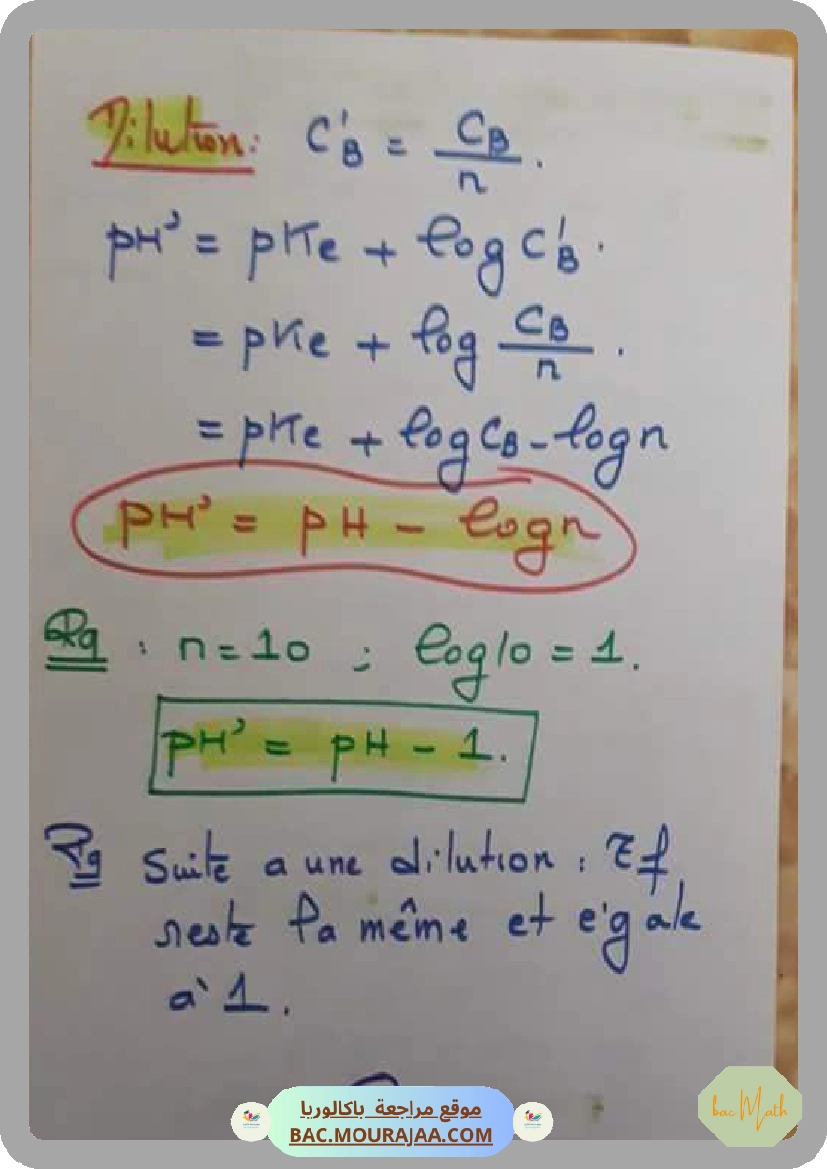 Dilution: C'B = CB/n.
pH' = pKe + log C'B.
= pKe + log CB/n.
= pKe + log CB - log n
pH' = pH - log n
Rq : n = 10 ; log 10 = 1.
pH' = pH - 1.
Rq Suite a une dilution : τf
reste la même et égale
à 1.
موقع مراجعة باكالوريا
BAC.MOURAJAA.COM
bac Math